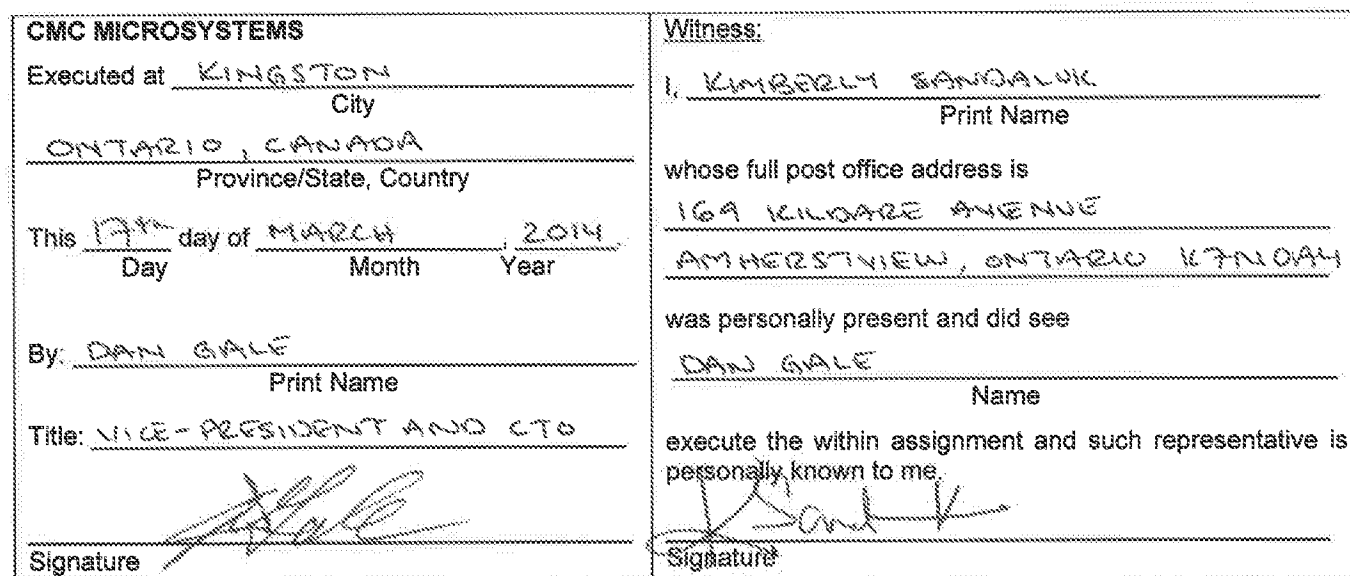 CMC MICROSYSTEMS
Executed at KINGSTON
City
ONTARIO, CANADA
Province/State, Country
This 17th day of MARCH, 2014
Day Month Year
By: DAN GALE
Print Name
Title: VICE-PRESIDENT AND CTO
Signature
Witness:
I, KIMBERLY SANDALUK
Print Name
whose full post office address is
169 KILDARE AVENUE
AMHERSTVIEW, ONTARIO K7N 0A4
was personally present and did see
DAN GALE
Name
execute the within assignment and such representative is
personally known to me.
Signature